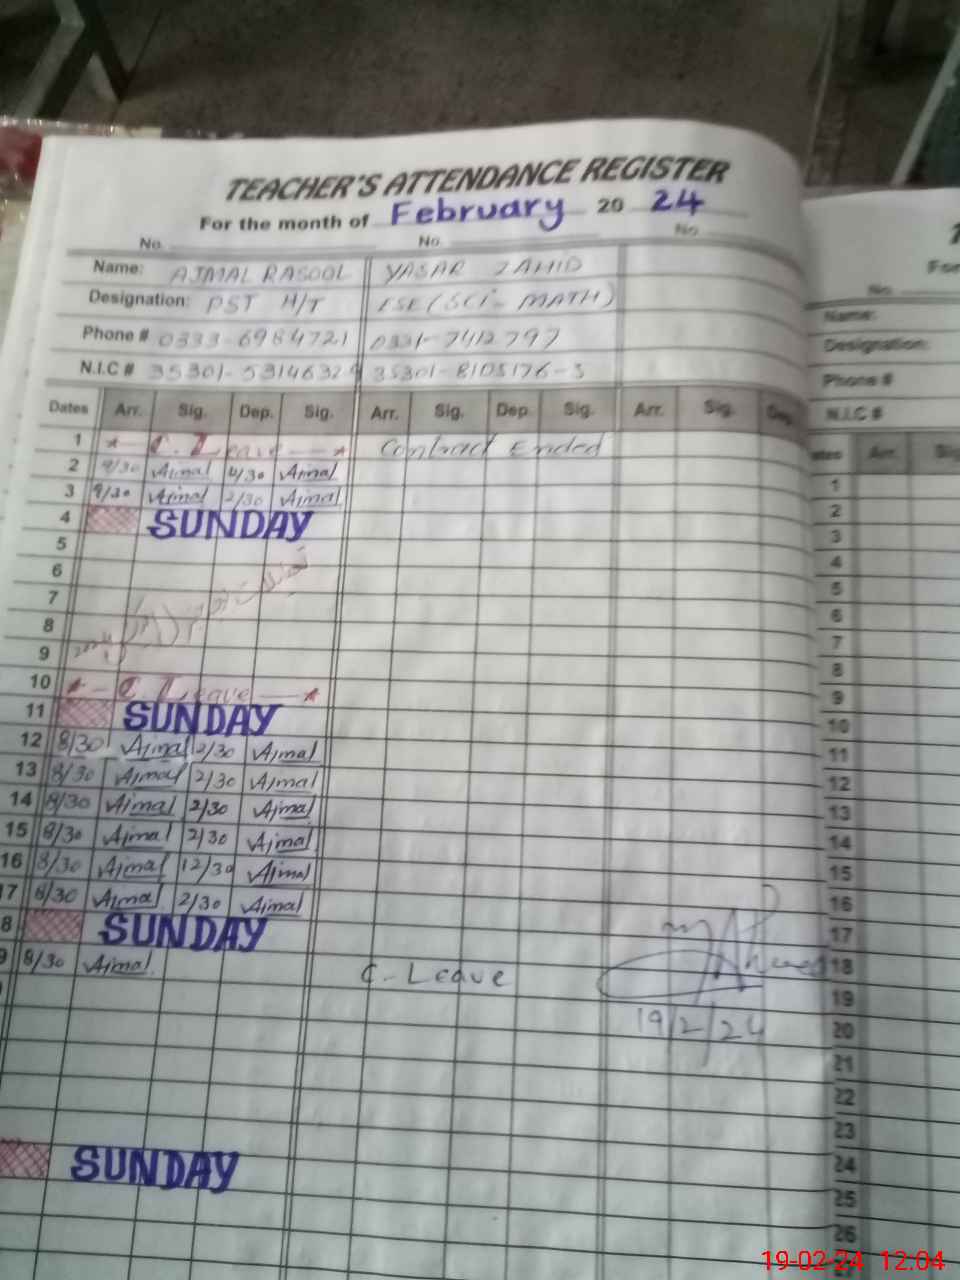 TEACHER'S ATTENDANCE REGISTER
For the month of February 20 24
No. No. No.
Name: AJMAL RASOOL YASAR ZAHID
Designation: PST H/T ESE (SCI- MATH)
Phone # 0333-6984721 0331-7412797
N.I.C # 35301-5314632 35301-8105176-3
Dates Arr. Sig. Dep. Sig. Arr. Sig. Dep. Sig. Arr. Sig. Dep.
1 * C. Leave * Contract Ended
2 9/30 Ajmal 2/30 Ajmal
3 9/30 Ajmal 2/30 Ajmal
4 SUNDAY
5
6
7
8
9
10 * - C. Leave *
11 SUNDAY
12 8/30 Ajmal 2/30 Ajmal
13 8/30 Ajmal 2/30 Ajmal
14 8/30 Ajmal 2/30 Ajmal
15 8/30 Ajmal 2/30 Ajmal
16 8/30 Ajmal 12/30 Ajmal
17 8/30 Ajmal 2/30 Ajmal
8 SUNDAY
9 8/30 Ajmal C. Leave
19/2/24
SUNDAY
For
No.
Name:
Designation:
Phone #
N.I.C #
ates Arr. Sig
1
2
3
4
5
6
7
8
9
10
11
12
13
14
15
16
17
18
19
20
21
22
23
24
25
26
19-02-24 12:04